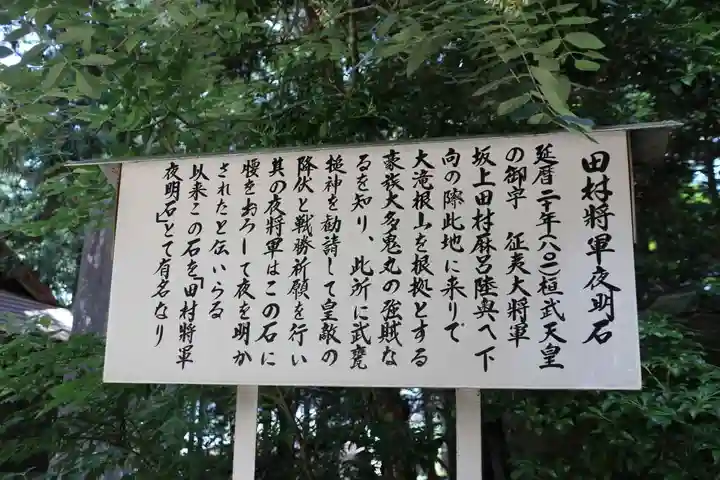 田村将軍夜明石
延暦二十年(八〇一)桓武天皇
の御宇 征夷大将軍
坂上田村麻呂陸奥へ下
向の際此地に来りて
大滝根山を根拠とする
豪族大多鬼丸の強賊な
るを知り、此所に武甕
槌神を勧請して皇敵の
降伏と戦勝祈願を行い
其の夜将軍はこの石に
腰をおろして夜を明か
されたと伝いらる
以来この石を「田村将軍
夜明石」とて有名なり